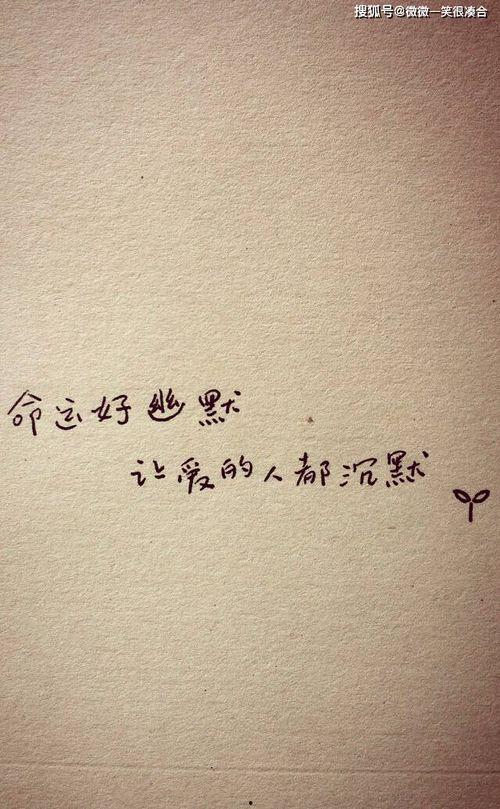 搜狐号@微微一笑很凑合
命运好幽默
让爱的人都沉默